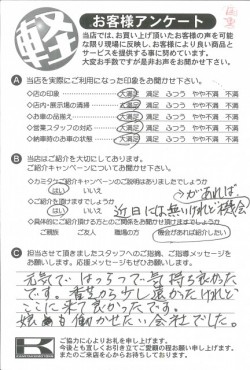 軽
お客様アンケート
当店では、お買い上げ頂いたお客様の声を可能
な限り現場に反映し、お客様により良い商品と
サービスを提供する事に努めています。
大変お手数ですが是非お声をお聞かせ下さい。
A 当店を実際にご利用になった印象をお聞かせ下さい。
◇店の印象 大満足 満足 ふつう やや不満 不満
◇店内・展示場の清掃 大満足 満足 ふつう やや不満 不満
◇お車の品揃え 大満足 満足 ふつう やや不満 不満
◇営業スタッフの対応 大満足 満足 ふつう やや不満 不満
◇納車時のお車の状態 大満足 満足 ふつう やや不満 不満
B 当店のご紹介を大切にしてあります。
ご紹介キャンペーンについてお聞かせ下さい。
◇カミタケご紹介キャンペーンのご説明はありましたでしょうか
はい いいえ
◇ご紹介を頂けますでしょうか
はい いいえ
近日には無いけれど機会
があれば
◇具体的にご紹介頂ける方とのご関係をお聞かせ頂けますでしょうか
ご親族 ご友人 職場の方 機会があれば紹介したい
C 担当させて頂きましたスタッフへのご指摘、ご指導メッセージを
お願いします。応援メッセージもぜひお願いします。
元気ではっらつで気持ち良かった
です。
けれど
ここに来て良かったです。
娘も働かせたい会社でした。
ご協力に心よりお礼を申し上げます。
今後とも宜しくお引き立てご愛顧の程お願い申し上げます。
またのご来店を心からお待ちしております。